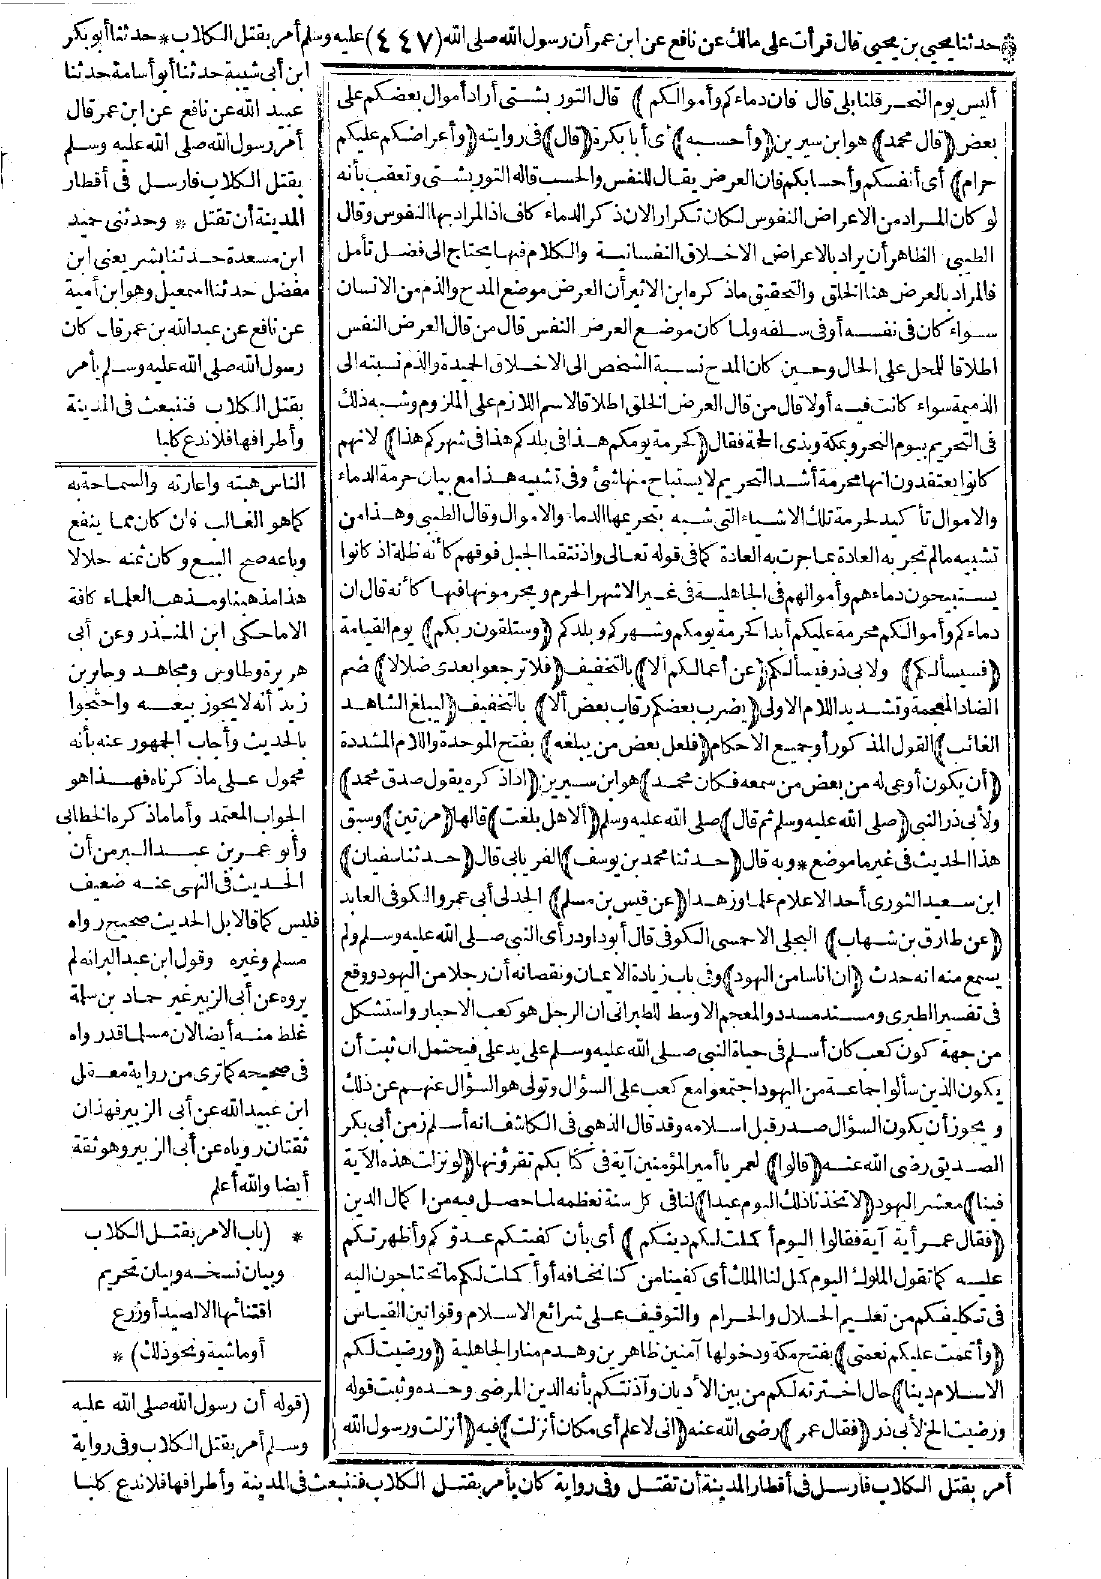 * حدثنا يحيى بن يحيى قال قرأت على مالك عن نافع عن ابن عمر أن رسول الله صلى الله (٤٤٧) عليه وسلم أمر بقتل الكلاب * حدثنا أبو بكر
ابن أبي شيبة حدثنا أبو أسامة حدثنا
عبيد الله عن نافع عن ابن عمر قال
أمر رسول الله صلى الله عليه وسلم
بقتل الكلاب فارسل في أقطار
المدينة أن تقتل * وحدثني حميد
ابن مسعدة حدثنا بشر يعني ابن
مفضل حدثنا اسمعيل وهو ابن أمية
عن نافع عن عبد الله بن عمر قال كان
رسول الله صلى الله عليه وسلم يأمر
بقتل الكلاب فننبعث في المدينة
وأطرافها فلا ندع كلبا
الناس هبته واعارته والسماحة به
كما هو الغالب فان كان مما ينفع
وباعه صح البيع وكان ثمنه حلالا
هذا مذهبنا ومذهب العلماء كافة
الا ما حكى ابن المنذر وعن أبي
هريرة وطاوس ومجاهد وجابر بن
زيد أنه لا يجوز بيعه واحتجوا
بالحديث وأجاب الجمهور عنه بأنه
محمول على ما ذكرناه فهذا هو
الجواب المعتمد وأما ما ذكره الخطابي
وأبو عمر بن عبد البر من أن
الحديث في النهى عنه ضعيف
فليس كما قالا بل الحديث صحيح رواه
مسلم وغيره وقول ابن عبد البر انه لم
يروه عن أبي الزبير غير حماد بن سلمة
غلط منه أيضا لان مسلما قدرواه
في صحيحه كما ترى من رواية معقل
ابن عبيد الله عن أبي الزبير فهذان
ثقتان روياه عن أبي الزبير وهو ثقة
أيضا والله أعلم
* (باب الامر بقتل الكلاب
وبيان نسخه وبيان تحريم
اقتنائها الا لصيد أو زرع
أو ماشية ونحو ذلك) *
(قوله أن رسول الله صلى الله عليه
وسلم أمر بقتل الكلاب وفي رواية
أمر بقتل الكلاب فارسل في أقطار المدينة أن تقتل وفي رواية كان يأمر بقتل الكلاب فننبعث في المدينة وأطرافها فلا ندع كلبا
أليس يوم النحر قلنا بلى قال فان دماءكم وأموالكم) قال التوربشتى أراد أموال بعضكم على
بعض (قال محمد) هو ابن سيرين (وأحسبه) أى أبا بكرة (قال) في روايته (وأعراضكم عليكم
حرام) أى أنفسكم وأحسابكم فان العرض يقال للنفس والحسب قاله التوربشتى وتعقب بأنه
لو كان المراد من الاعراض النفوس لكان تكرارا لان ذكر الدماء كاف اذ المراد بها النفوس وقال
الطيبى الظاهر أن يراد بالاعراض الاخلاق النفسانية والكلام فيها يحتاج الى فضل تأمل
فالمراد بالعرض هنا الخلق والتحقيق ما ذكره ابن الاثير أن العرض موضع المدح والذم من الانسان
سواء كان في نفسه أو في سلفه ولما كان موضع العرض النفس قال من قال العرض النفس
اطلاقا للمحل على الحال وحين كان المدح نسبة الشخص الى الاخلاق الحميدة والذم نسبته الى
الذميمة سواء كانت فيه أولا قال من قال العرض الخلق اطلاقا لاسم اللازم على الملزوم وشبه ذلك
في التحريم بيوم النحر وبمكة وبذى الحجة فقال (كحرمة يومكم هذا في بلدكم هذا في شهركم هذا) لانهم
كانوا يعتقدون انها محرمة أشد التحريم لا يستباح منها شئ وفي تشبيه هذا مع بيان حرمة الدماء
والاموال تأكيد لحرمة تلك الاشياء التى شبه بتحريمها الدماء والاموال وقال الطيبى وهذا من
تشبيه ما لم تجر به العادة بما جرت به العادة كما في قوله تعالى واذ نتقنا الجبل فوقهم كأنه ظلة اذ كانوا
يستبيحون دماءهم وأموالهم في الجاهلية في غير الاشهر الحرم ويحرمونها فيها كأنه قال ان
دماءكم وأموالكم محرمة عليكم أبدا كحرمة يومكم وشهركم وبلدكم (وستلقون ربكم) يوم القيامة
(فسيسألكم) ولابى ذر فيسألكم (عن أعمالكم ألا) بالتخفيف (فلا ترجعوا بعدى ضلالا) ضم
الضاد المعجمة وتشديد اللام الاولى (يضرب بعضكم رقاب بعض ألا) بالتخفيف (ليبلغ الشاهد
الغائب) القول المذكور أو جميع الاحكام (فلعل بعض من يبلغه) بفتح الموحدة واللام المشددة
(أن يكون أوعى له من بعض من سمعه فكان محمد) هو ابن سيرين (اذا ذكره يقول صدق محمد)
ولأبى ذر النبى (صلى الله عليه وسلم ثم قال) صلى الله عليه وسلم (ألا هل بلغت) قالها (مرتين) وسبق
هذا الحديث في غير ما موضع * وبه قال (حدثنا محمد بن يوسف) الفريابى قال (حدثنا سفيان)
ابن سعيد الثورى أحد الاعلام علما وزهدا (عن قيس بن مسلم) الجدلى أبى عمرو الكوفى العابد
(عن طارق بن شهاب) البجلى الاحمسى الكوفى قال أبو داود رأى النبى صلى الله عليه وسلم ولم
يسمع منه انه حدث (ان اناسا من اليهود) وفي باب زيادة الايمان ونقصانه أن رجلا من اليهود ووقع
في تفسير الطبرى ومسند مسدد والمعجم الاوسط للطبرانى ان الرجل هو كعب الاحبار واستشكل
من جهة كون كعب كان أسلم في حياة النبى صلى الله عليه وسلم على يد على فيحتمل ان ثبت أن
يكون الذين سألوا جماعة من اليهود اجتمعوا مع كعب على السؤال وتولى هو السؤال عنهم عن ذلك
ويجوز أن يكون السؤال صدر قبل اسلامه وقد قال الذهبى في الكاشف انه أسلم زمن أبى بكر
الصديق رضى الله عنه (قالوا) لعمر يا أمير المؤمنين آية في كتابكم تقرؤنها (لو نزلت هذه الآية
فينا) معشر اليهود (لاتخذنا ذلك اليوم عيدا) لنا في كل سنة نعظمه لما حصل فيه من اكمال الدين
(فقال عمر أية آية فقالوا اليوم أكملت لكم دينكم) أى بأن كفيتكم عدوكم وأظهرتكم
عليه كما تقول الملوك اليوم كمل لنا الملك أى كفينا من كنا نخافه أو أكملت لكم ما تحتاجون اليه
في تكليفكم من تعليم الحلال والحرام والتوقيف على شرائع الاسلام وقوانين القياس
(وأتممت عليكم نعمتى) بفتح مكة ودخولها آمنين ظاهرين وهدم منار الجاهلية (ورضيت لكم
الاسلام دينا) حال اخترته لكم من بين الأديان وآذنتكم بأنه الدين المرضى وحده وثبت قوله
ورضيت الخ لأبى ذر (فقال عمر) رضى الله عنه (انى لاعلم أى مكان أنزلت) فيه (أنزلت ورسول الله